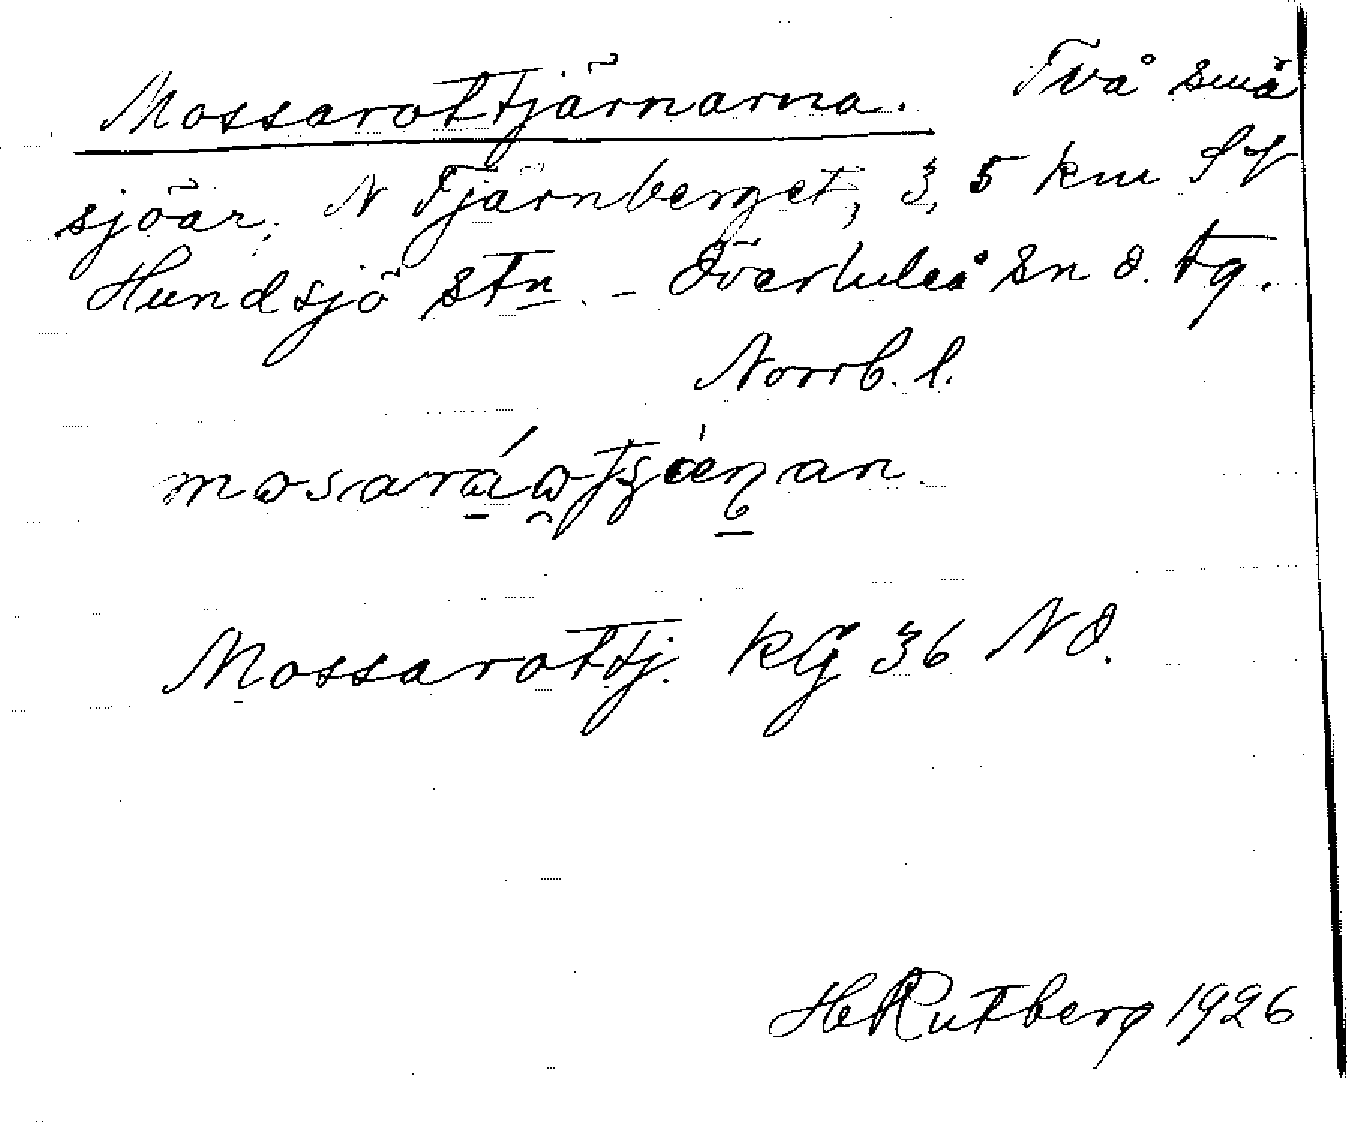 Mossarottjärnarna. Två små
sjöar, N Tjärnberget, 3,5 km SV
Hundsjö stn. - Överluleå sn ö. tg.
Norrb. l.
Mossarottj. KG 36 NO.
H Rutberg 1926